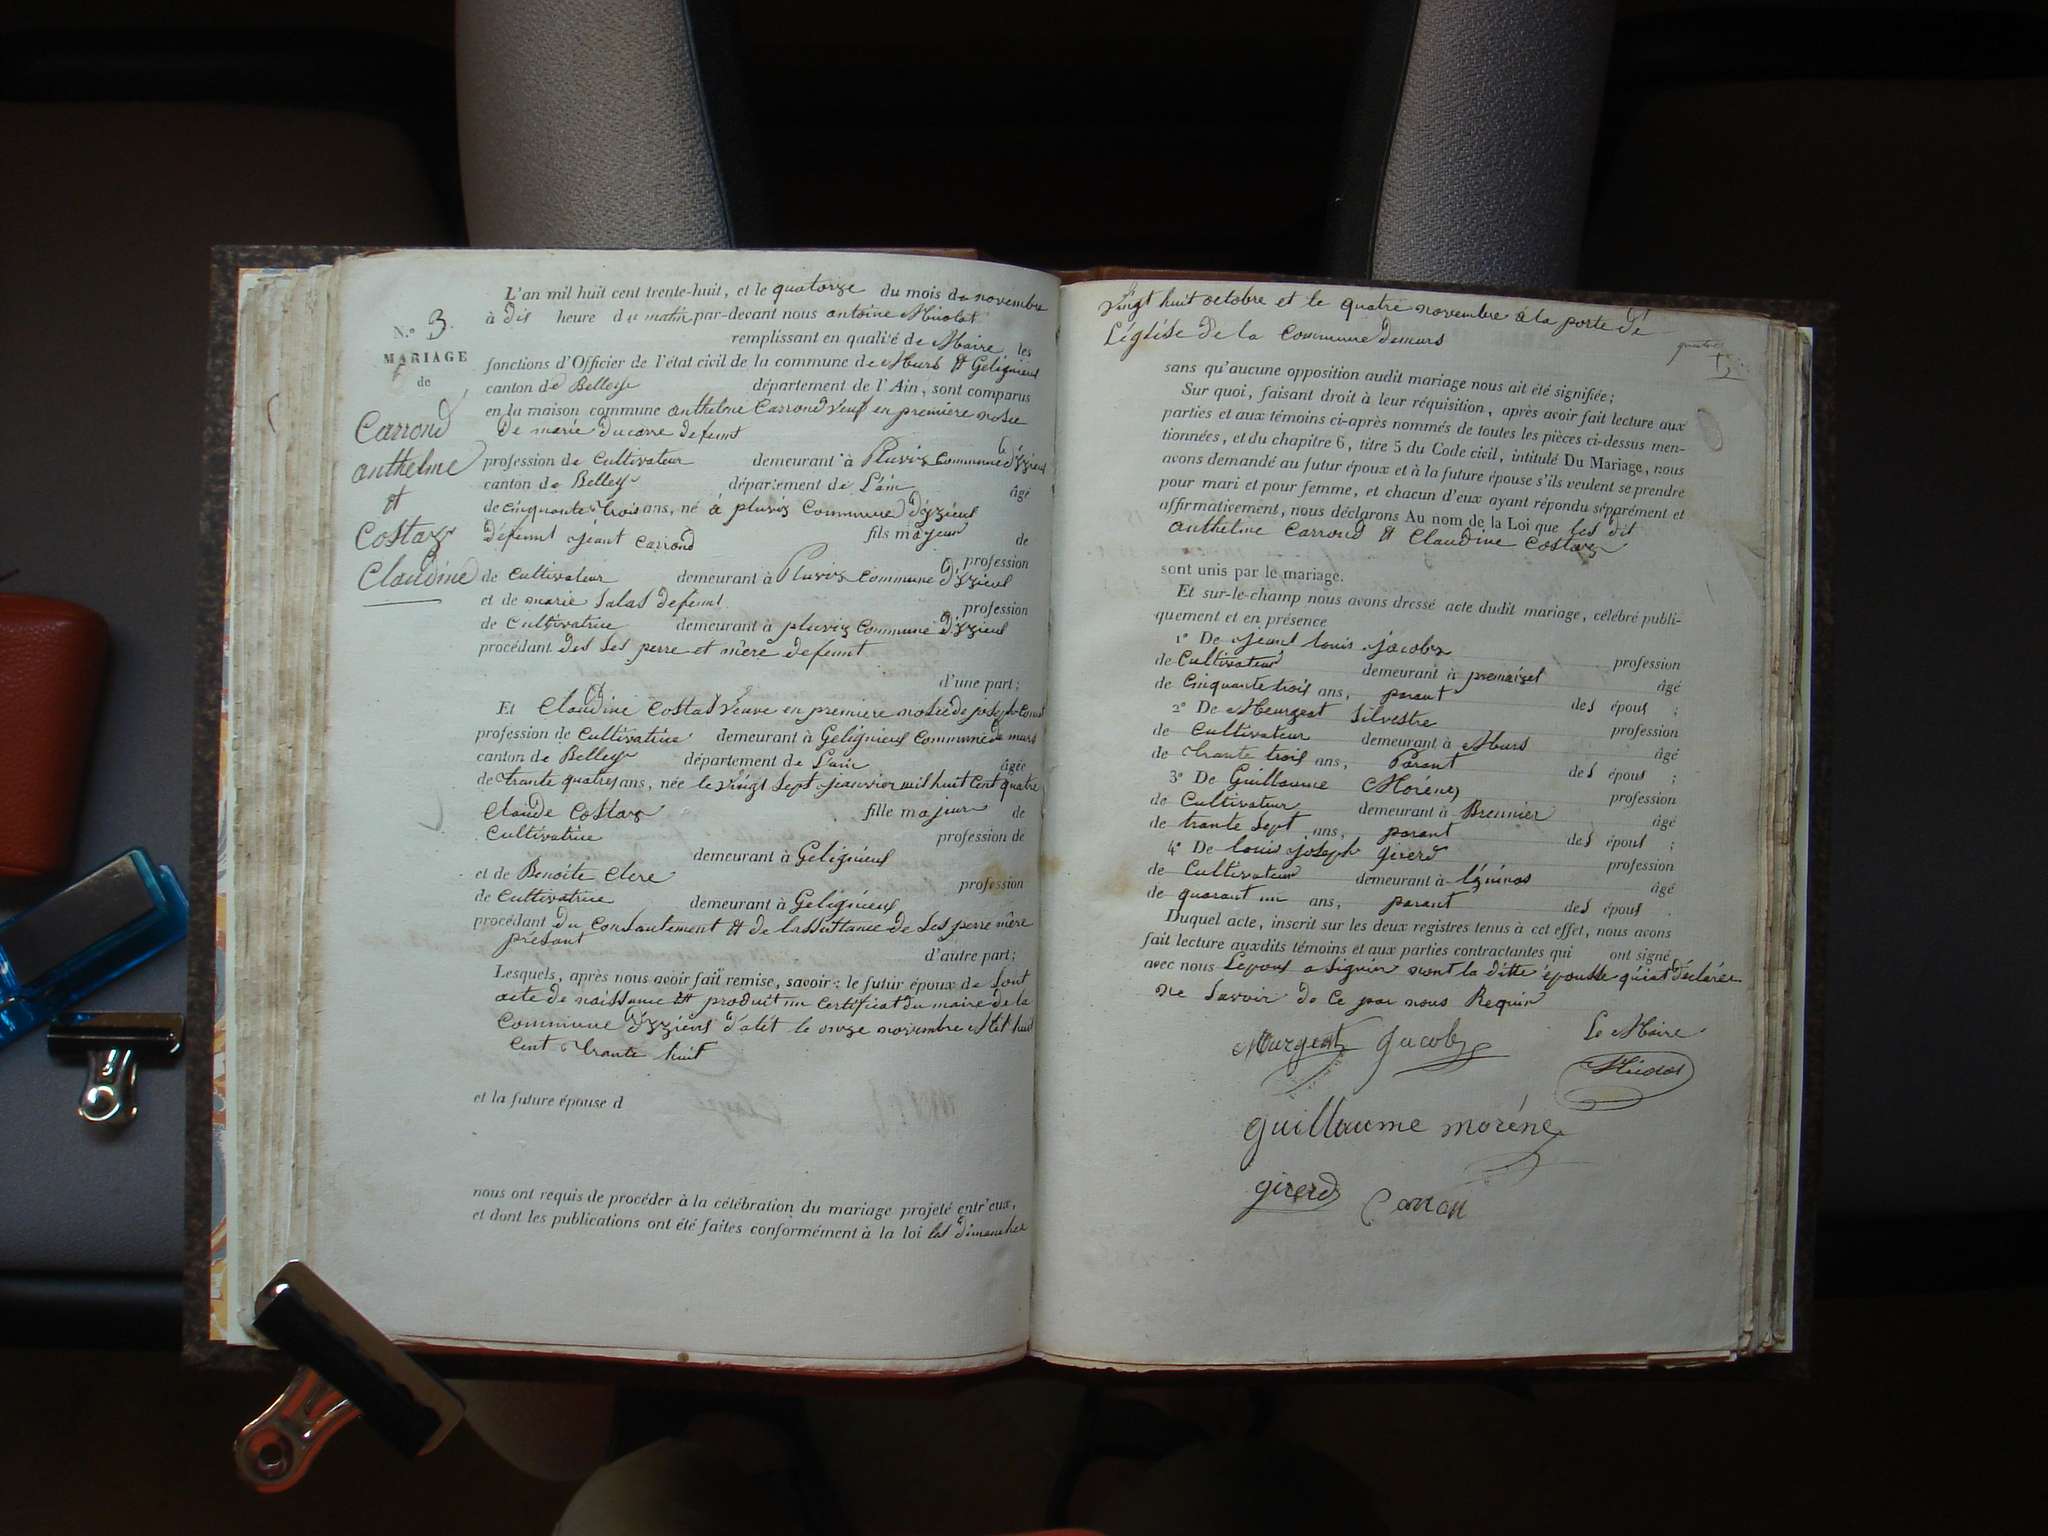 N.º 3.
MARIAGE
de
Carrond
anthelme
et
Costaz
Claudine
L'an mil huit cent trente-huit, et le quatorze du mois de novembre
à dis heure du matin par-devant nous antoine
remplissant en qualité de Maire les
fonctions d'Officier de l'état civil de la commune de Murs et Gelignieux
canton de Belley département de l'Ain, sont comparus
en la maison commune anthelme Carrond veuf en premiere nosee
de marie Ducarre defunt
profession de Cultivateur demeurant à Pluvis Commune d'izzieu
canton de Belley département de L'ain âgé
de cinquante trois ans, né à pluvis Commune d'izzieu
défunt jeant Carrond fils majeur de
profession
de Cultivateur demeurant à Pluvis Commune d'izzieu
et de marie Salas defunt profession
de Cultivatrice demeurant à pluvis Commune d'izzieu
procédant des ses perre et mere defunt
d'une part;
Et Claudine Costaz Veuve en premiere nosee de joseph
profession de Cultivatrice demeurant à Gelignieux Commune de murs
canton de Belley département de L'ain âgée
de trante quatres ans, née le vingt sept jeanvier mil huit cent quatre
Claude Costaz fille majeur de
Cultivatrice profession de
demeurant à Gelignieux
et de Benoite Clere profession
de Cultivatrice demeurant à Gelignieux
procédant du Consantement et de lassistance de ses perre mere
présant
d'autre part;
Lesquels, après nous avoir fait remise, savoir: le futur époux de sont
acte de naissance et produit un Certificat du maire de la
Commune d'izzieu d'atet le onze novembre Mil huit
Cent trante huit
et la future épouse d
nous ont requis de procéder à la célébration du mariage projeté entr'eux,
et dont les publications ont été faites conformément à la loi les dimanches
vingt huit octobre et le quatre novembre à la porte de
L'église de la Commune demurs
sans qu'aucune opposition audit mariage nous ait été signifiée;
Sur quoi, faisant droit à leur réquisition, après avoir fait lecture aux
parties et aux témoins ci-après nommés de toutes les pièces ci-dessus men-
tionnées, et du chapitre 6, titre 5 du Code civil, intitulé Du Mariage, nous
avons demandé au futur époux et à la future épouse s'ils veulent se prendre
pour mari et pour femme, et chacun d'eux ayant répondu séparément et
affirmativement, nous déclarons Au nom de la Loi que les dit
anthelme Carrond et Claudine Costaz
sont unis par le mariage.
Et sur-le-champ nous avons dressé acte dudit mariage, célébré publi-
quement et en présence
1º De jeant louis jacob profession
de Cultivateur demeurant à premeizel âgé
de Cinquante trois ans, parant des épous ;
2º De Meurgent Silvestre profession
de Cultivateur demeurant à Murs âgé
de trante trois ans, Parant des épous ;
3º De Guillaume Moréne profession
de Cultivateur demeurant à Brennier âgé
de trante Sept ans, parant des épous ;
4º De louis joseph girerd profession
de Cultivateur demeurant à âgé
de quarant un ans, parant des épous .
Duquel acte, inscrit sur les deux registres tenus à cet effet, nous avons
fait lecture auxdits témoins et aux parties contractantes qui ont signé
avec nous Lepous a signier nont la ditte épousse quiat déclarée
ne Savoir de Ce par nous Requir
Murgent Jacob Le Maire
guillaume moréne
girerd Carron